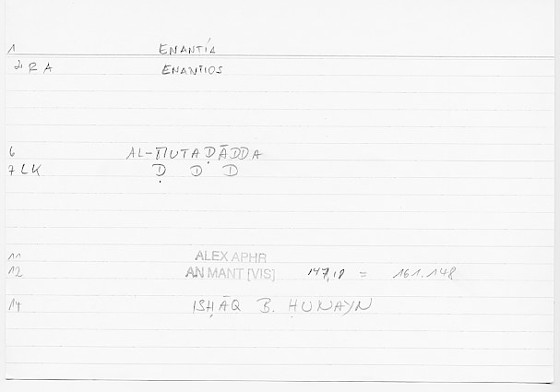 1 ENANTÍA
2i RA ENANTIOS
6 AL-MUTAḌĀDDA
7 LK Ḍ D D
11 ALEX APHR
12 AN MANT [VIS] 147,18 = 161.148
14 ISḤĀQ B. ḤUNAYN